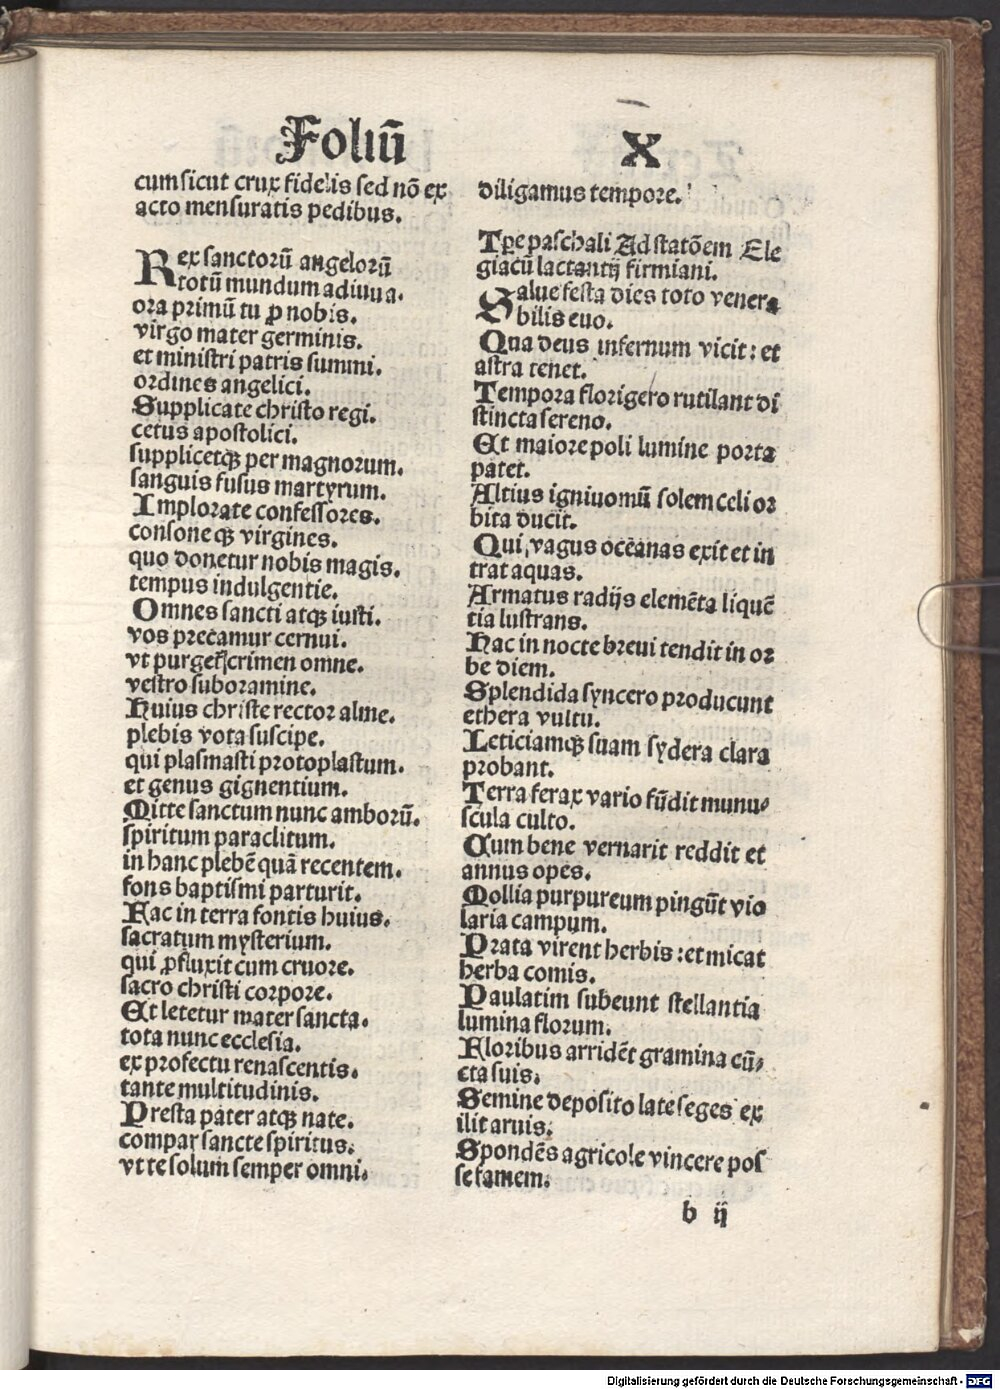 Foliū X
cum sicut crux fidelis sed nō ex
acto mensuratis pedibus.
Rex sanctorū angelorū
totū mundum adiuua.
ora primū tu ꝓ nobis.
virgo mater germinis.
et ministri patris summi.
ordines angelici.
Supplicate christo regi.
cetus apostolici.
supplicetqꝫ per magnorum.
sanguis fusus martyrum.
Implorate confessores.
consoneqꝫ virgines.
quo donetur nobis magis.
tempus indulgentie.
Omnes sancti atqꝫ iusti.
vos precamur cernui.
vt purget crimen omne.
vestro sub oramine.
Huius christe rector alme.
plebis vota suscipe.
qui plasmasti protoplastum.
et genus gignentium.
Mitte sanctum nunc amborū.
spiritum paraclitum.
in hanc plebē quā recentem.
fons baptismi parturit.
Fac in terra fontis huius.
sacratum mysterium.
qui ꝓfluxit cum cruore.
sacro christi corpore.
Et letetur mater sancta.
tota nunc ecclesia.
ex profectu renascentis.
tante multitudinis.
Presta pater atqꝫ nate.
compar sancte spiritus.
vt te solum semper omni.
diligamus tempore.
Tꝑe paschali Ad statōem Ele
giacū lactantij firmiani.
Salue festa dies toto venera
bilis euo.
Qua deus infernum vicit: et
astra tenet.
Tempora florigero rutilant di
stincta sereno.
Et maiore poli lumine porta
patet.
Altius igniuomū solem celi or
bita ducit.
Qui vagus oceanas exit et in
trat aquas.
Armatus radijs elemēta liquē
tia lustrans.
Hac in nocte breui tendit in or
be diem.
Splendida syncero producunt
ethera vultu.
Leticiamqꝫ suam sydera clara
probant.
Terra ferax vario fūdit munu⸗
scula culto.
Cum bene vernarit reddit et
annus opes.
Mollia purpureum pingūt vio
laria campum.
Prata virent herbis: et micat
herba comis.
Paulatim subeunt stellantia
lumina florum.
Floribus arridēt gramina cū⸗
cta suis.
Semine deposito late seges ex
ilit aruis.
Spondēs agricole vincere pos
se famem.
b ij
Digitalisierung gefördert durch die Deutsche Forschungsgemeinschaft - DFG